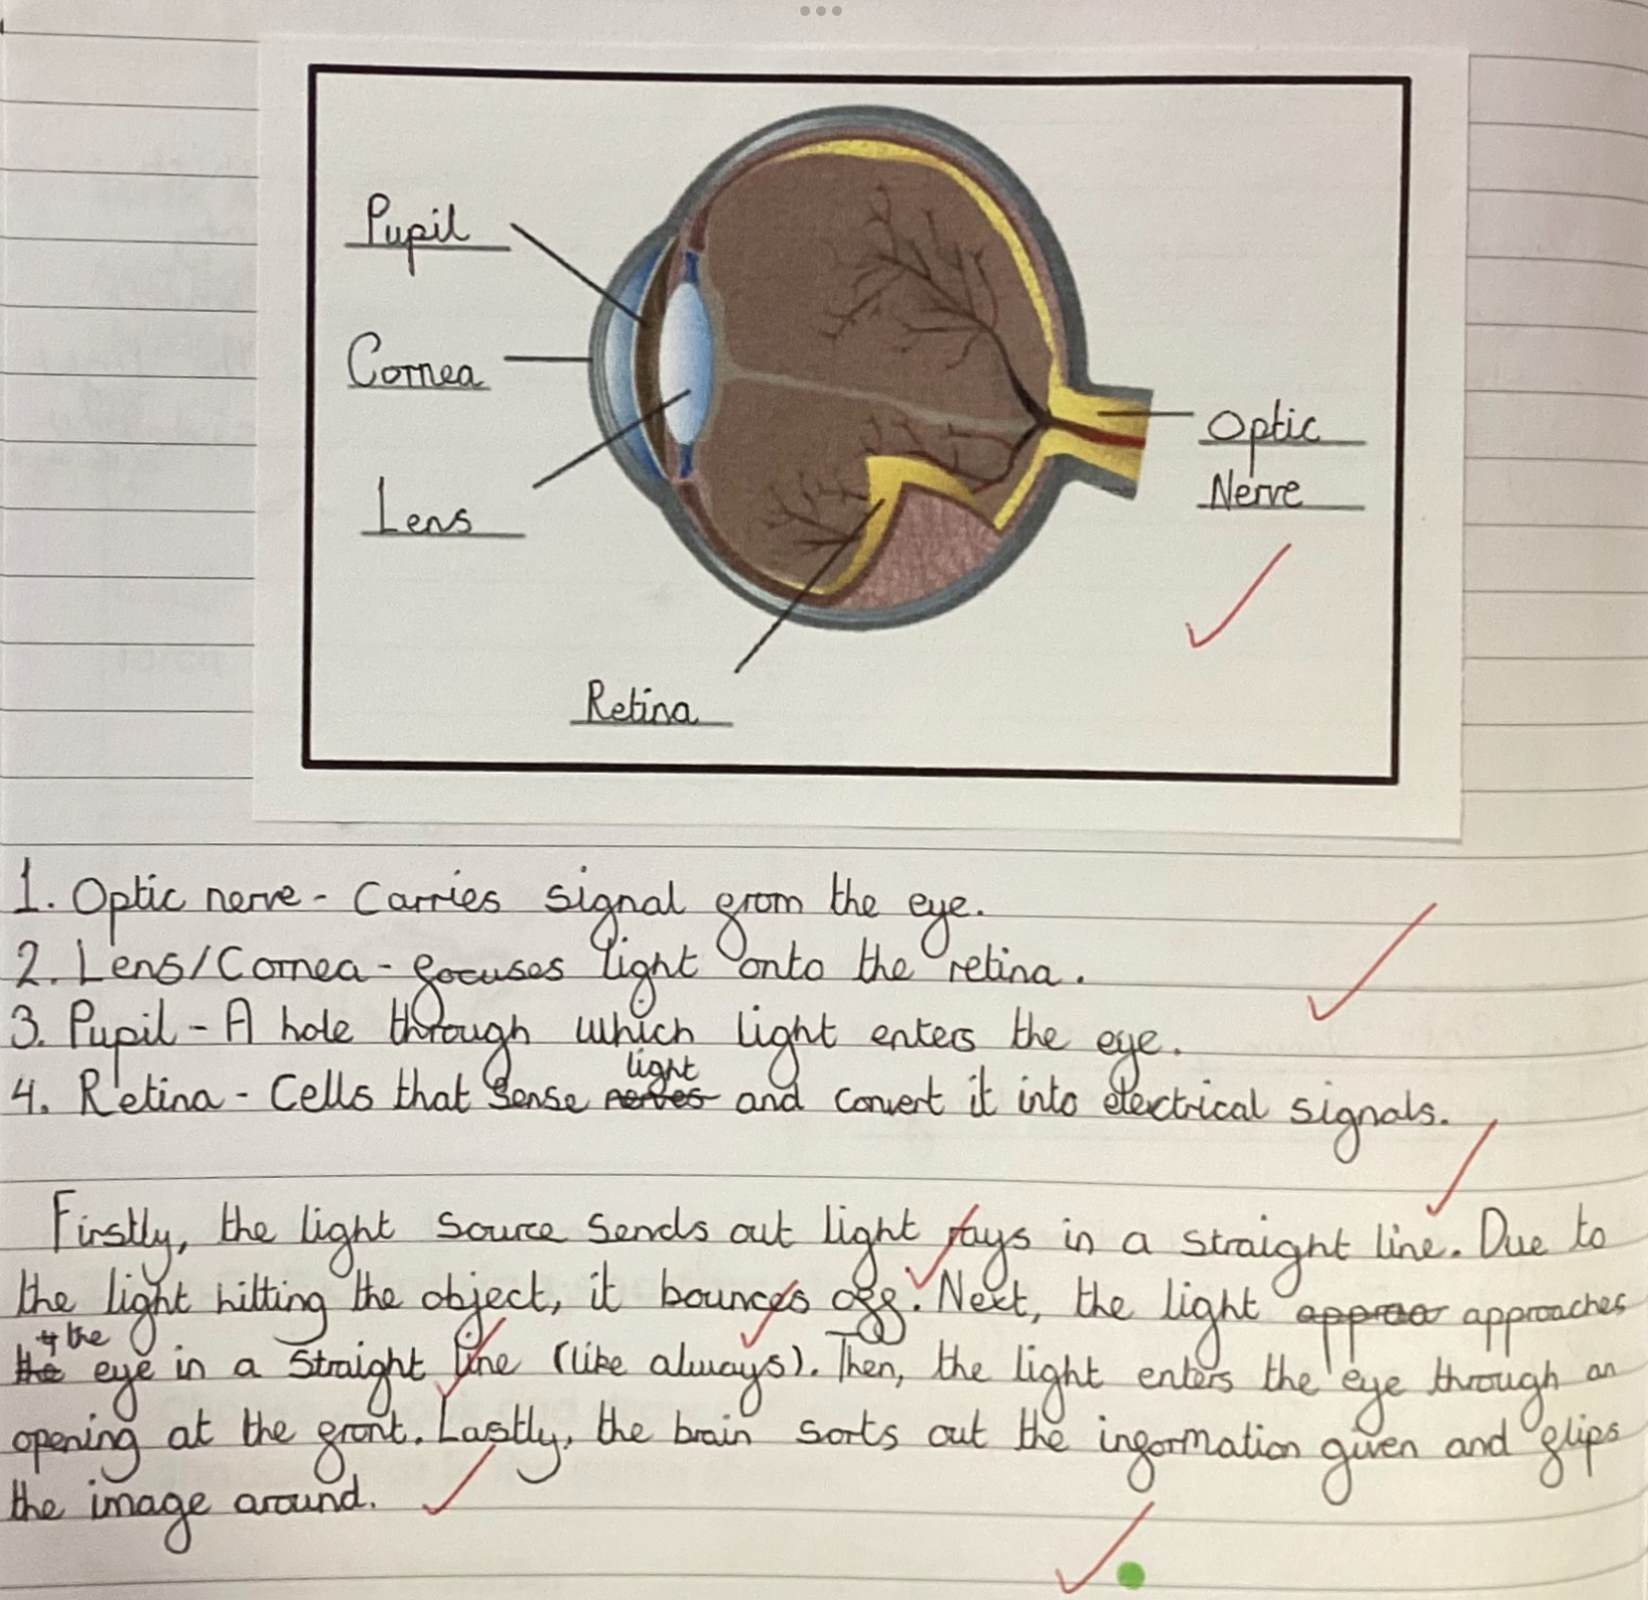 Pupil
Cornea
Lens
Optic
Nerve
Retina
1. Optic nerve - Carries signal from the eye.
2. Lens/Cornea - focuses light onto the retina.
3. Pupil - A hole through which light enters the eye.
light
4. Retina - Cells that sense nerves and convert it into electrical signals.
Firstly, the light source sends out light rays in a straight line. Due to
the light hitting the object, it bounces off. Next, the light approa approaches
the
the eye in a straight line (like always). Then, the light enters the eye through an
opening at the front. Lastly, the brain sorts out the information given and flips
the image around.